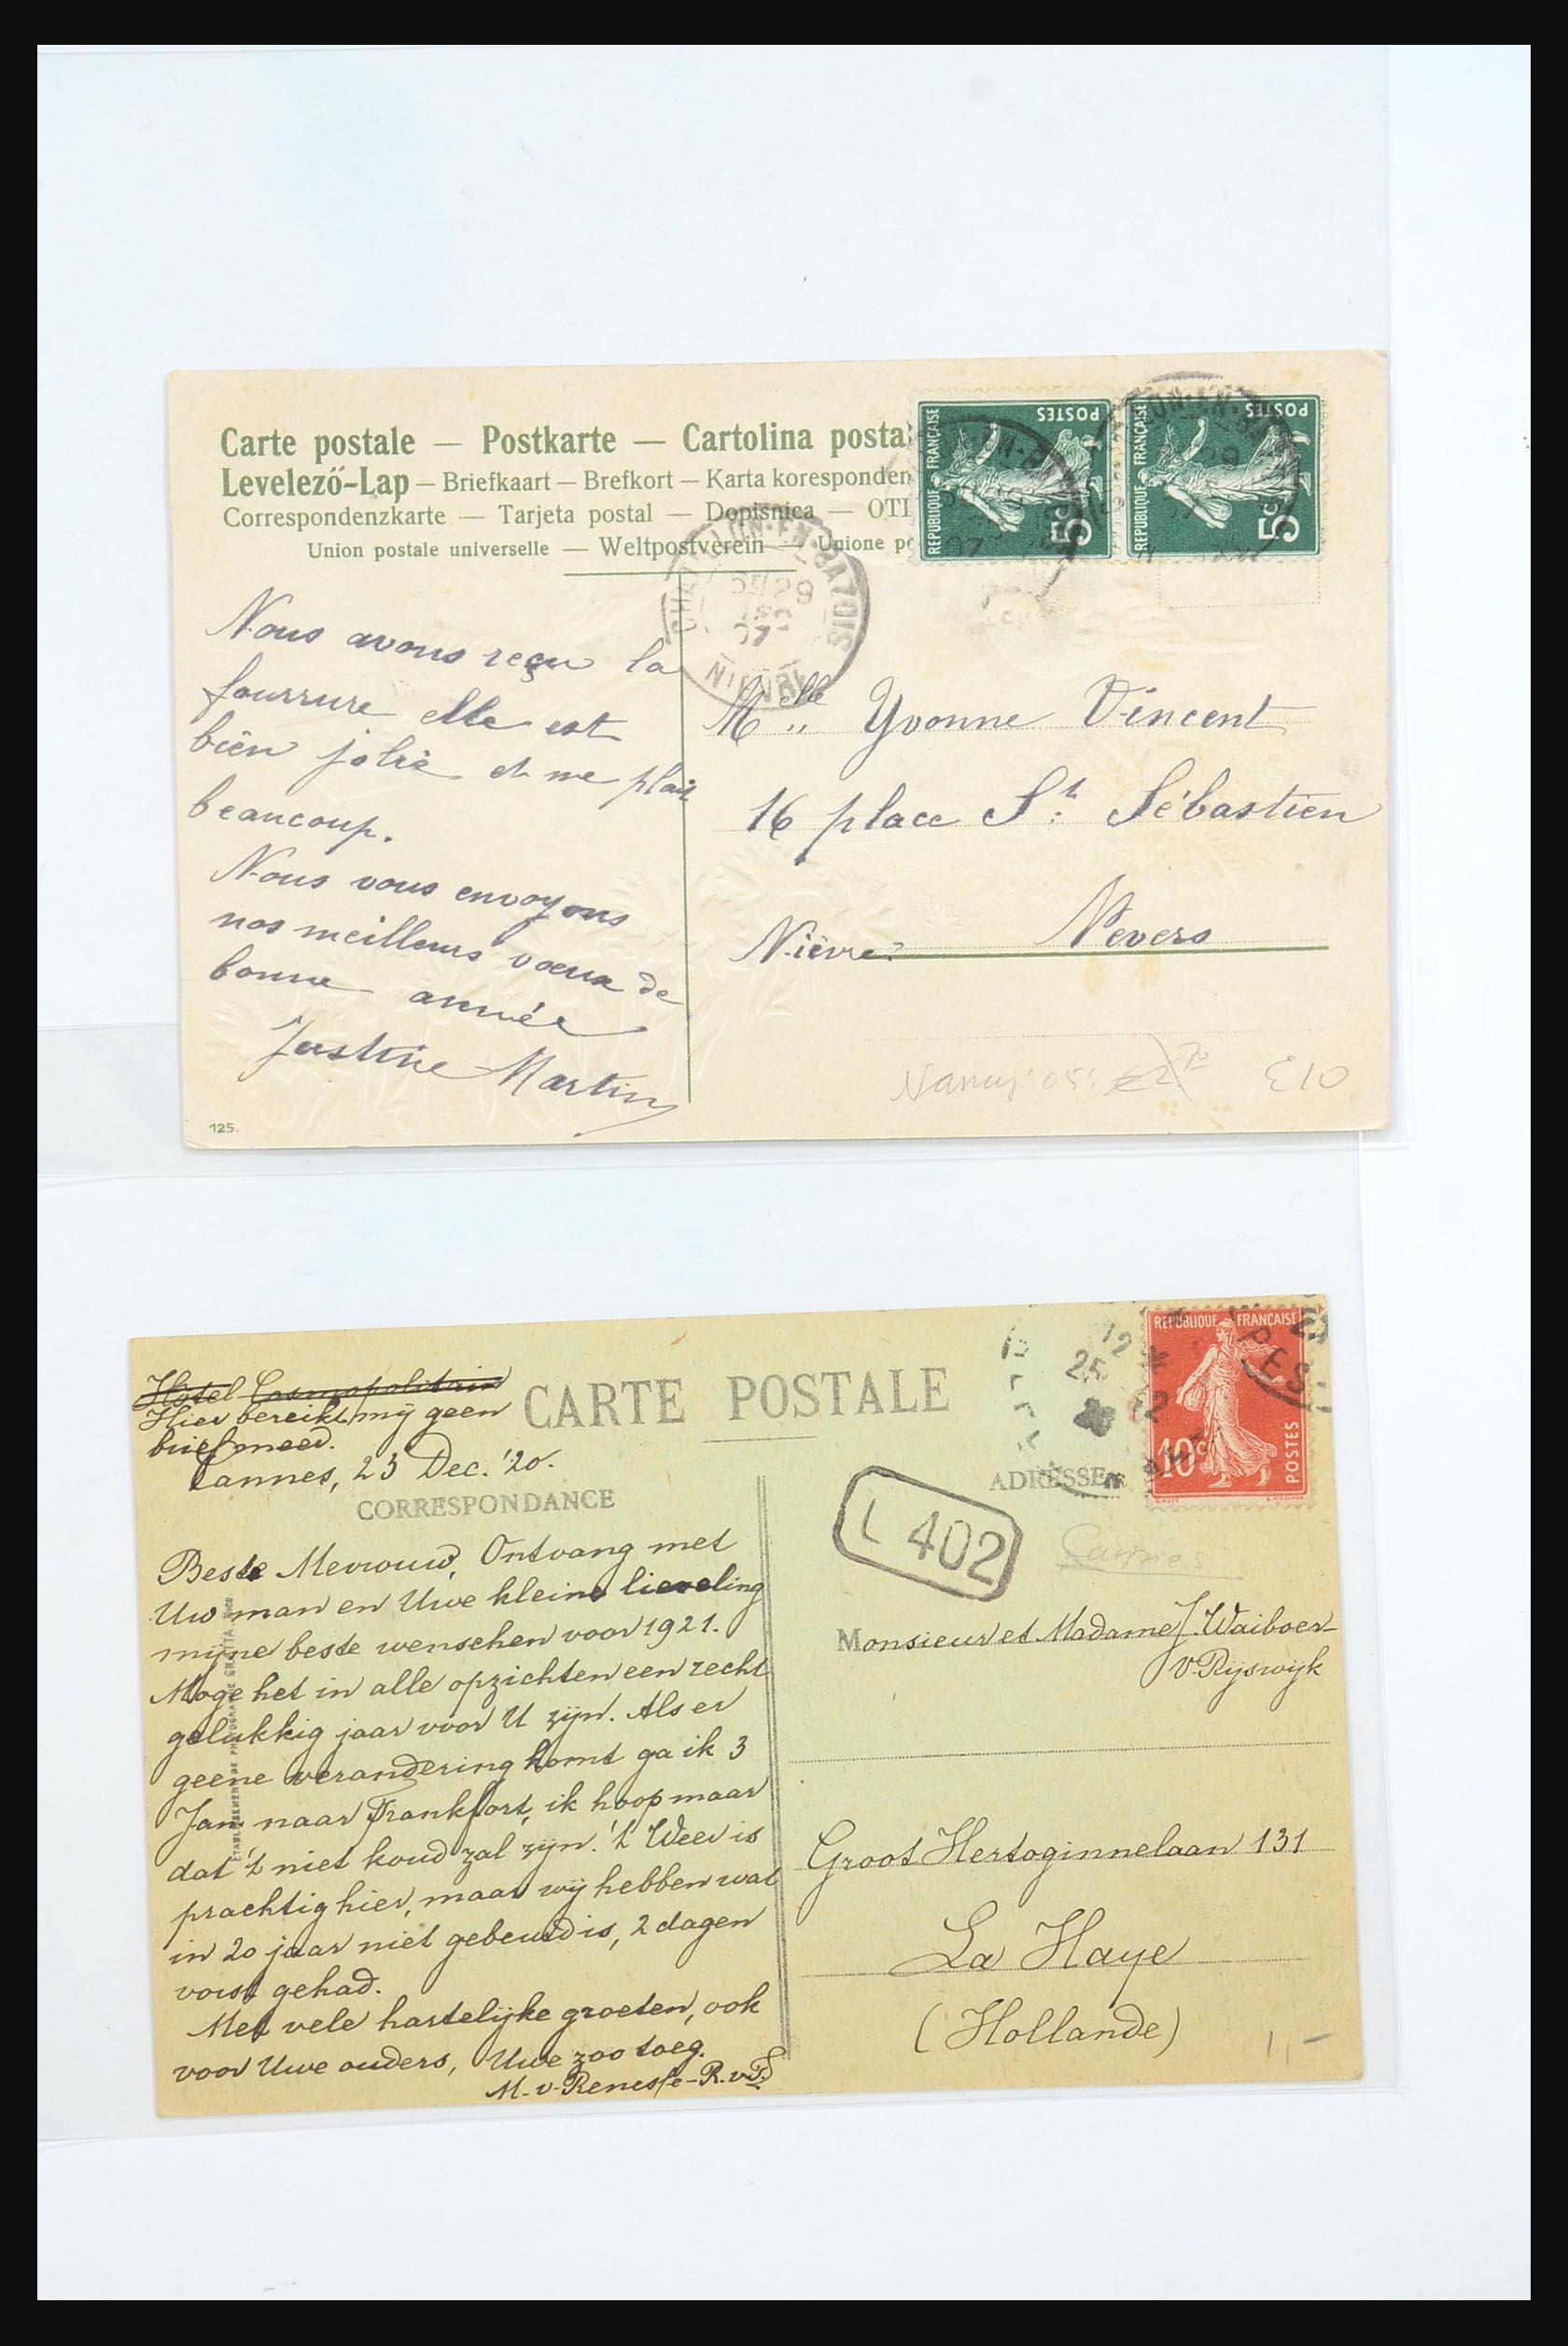 Carte postale — Postkarte — Cartolina posta
Levelező-Lap — Briefkaart — Brefkort — Karta koresponden
Correspondenzkarte — Tarjeta postal — Dopisnica — OTI
Union postale universelle — Weltpostverein — Unione po
REPUBLIQUE FRANÇAISE
POSTES
5c
REPUBLIQUE FRANÇAISE
POSTES
5c
CHATILLON-EN-BAZOIS
29
07
NIEVRE
Nous avons reçu la
fourrure elle est
bien jolie et me plait
beaucoup.
Nous vous envoyons
nos meilleurs voeux de
bonne année
Justine Martin
Melle Yvonne Vincent
16 place St. Sébastien
Nevers
Nièvre
Nancy 05:
£10
125.
Hôtel Cosmopolitain
Hier bereikt mij geen
brief meer.
Cannes, 23 Dec. '20.
CARTE POSTALE
CORRESPONDANCE
ADRESSE
REPUBLIQUE FRANÇAISE
10c
POSTES
12
25
12
L 402
Cannes
Beste Mevrouw, Ontvang met
Uw man en Uwe kleine lieveling
mijne beste wenschen voor 1921.
Moge het in alle opzichten een recht
gelukkig jaar voor U zijn. Als er
geene verandering komt ga ik 3
Jan. naar Frankfort, ik hoop maar
dat 't niet koud zal zijn. 't Weer is
prachtig hier, maar wij hebben wat
in 20 jaar niet gebeurd is, 2 dagen
vorst gehad.
Met vele hartelijke groeten, ook
voor Uwe ouders, Uwe zoo toeg.
M. v. Renesse-R. v. S.
Monsieur et Madame J. Waiboer-
v. Rijswijk
Groot Hertoginnelaan 131
La Haye
(Hollande)
1,-